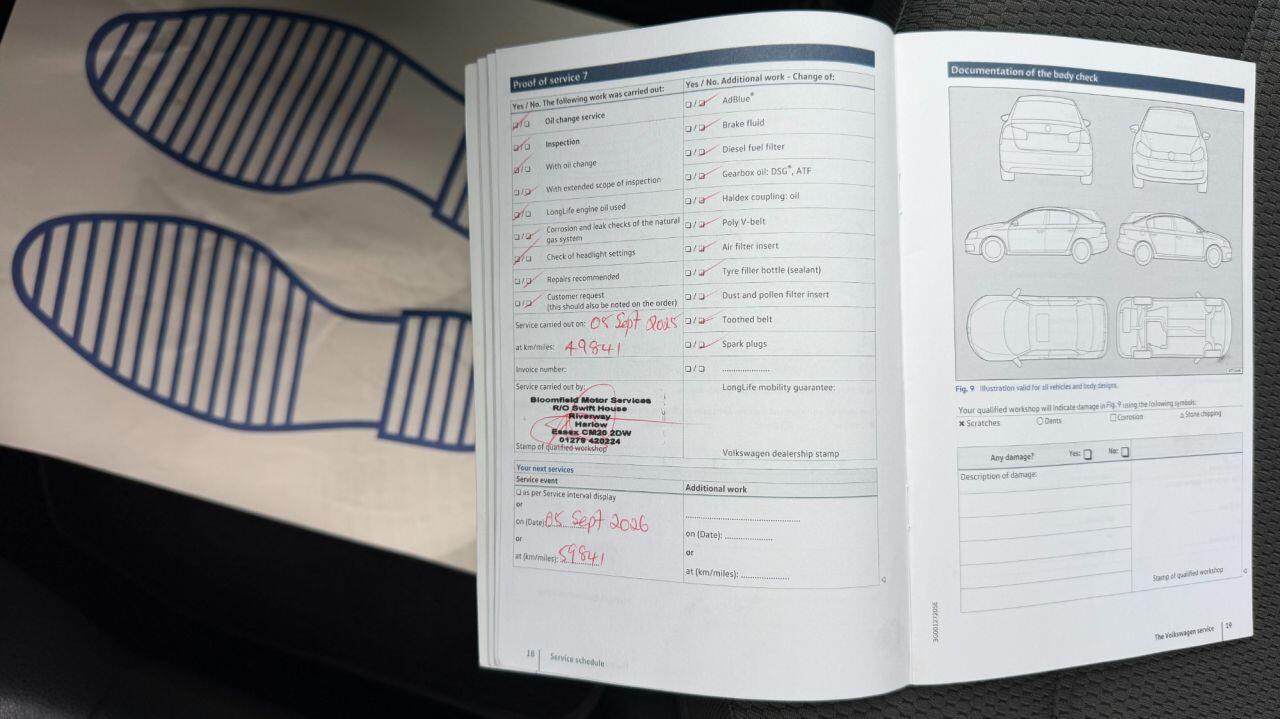 Proof of service 7
Yes / No. The following work was carried out:
☑/☐ Oil change service
☑/☐ Inspection
☑/☐ With oil change
☐/☑ With extended scope of inspection
☑/☐ LongLife engine oil used
☐/☑ Corrosion and leak checks of the natural
gas system
☑/☐ Check of headlight settings
☐/☑ Repairs recommended
☐/☑ Customer request
(this should also be noted on the order)
Service carried out on: 05 Sept 2025
at km/miles: 49841
Invoice number:
Service carried out by:
Bloomfield Motor Services
R/O Swift House
Riverway
Harlow
Essex CM20 2DW
01279 420224
Stamp of qualified workshop
Yes / No. Additional work - Change of:
☐/☑ AdBlue®
☐/☑ Brake fluid
☐/☑ Diesel fuel filter
☐/☑ Gearbox oil: DSG®, ATF
☐/☑ Haldex coupling: oil
☐/☑ Poly V-belt
☐/☑ Air filter insert
☐/☑ Tyre filler bottle (sealant)
☐/☑ Dust and pollen filter insert
☐/☑ Toothed belt
☐/☑ Spark plugs
☐/☐ ....................
LongLife mobility guarantee:
Volkswagen dealership stamp
Your next services
Service event
☐ as per Service interval display
or
on (Date): 05 Sept 2026
or
at (km/miles): 59841
Additional work
........................................
on (Date): ................
or
at (km/miles): ................
18 | Service schedule
Documentation of the body check
Fig. 9 Illustration valid for all vehicles and body designs.
Your qualified workshop will indicate damage in Fig. 9 using the following symbols:
✖ Scratches ○ Dents ☐ Corrosion △ Stone chipping
Any damage? Yes: ☐ No: ☐
Description of damage:
Stamp of qualified workshop
3G0012720SE
The Volkswagen service | 19